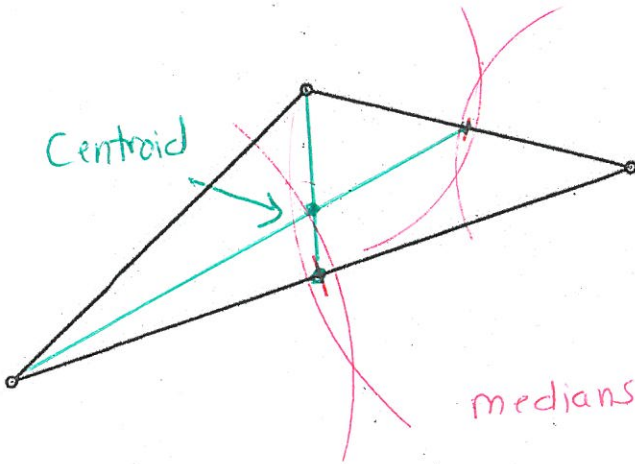 Centroid
medians